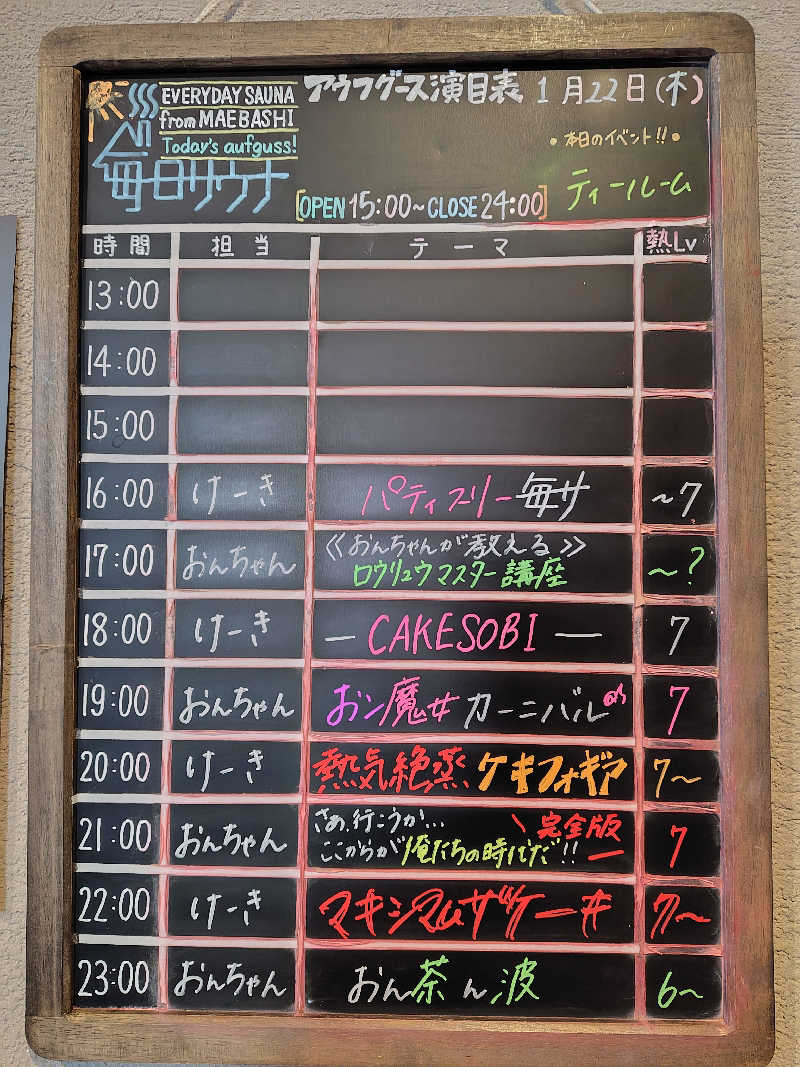 EVERYDAY SAUNA
from MAEBASHI
Today's aufguss!
毎日サウナ
アウフグース演目表 1月22日(木)
・本日のイベント!!・
[OPEN 15:00~CLOSE 24:00] ティールーム
時間 担当 テーマ 熱Lv
13:00
14:00
15:00
16:00 けーき パティスリー毎サ ~7
17:00 おんちゃん 《おんちゃんが教える》
ロウリュウマスター講座 ~?
18:00 けーき ― CAKESOBI ― 7
19:00 おんちゃん おン魔女カーニバル 7
20:00 けーき 熱気絶薬ケキフォギア 7~
21:00 おんちゃん さあ、行こうか… \完全版
ここからが俺たちの時代だ!! ― 7
22:00 けーき マキシマムザケーキ 7~
23:00 おんちゃん おん茶ん波 6~